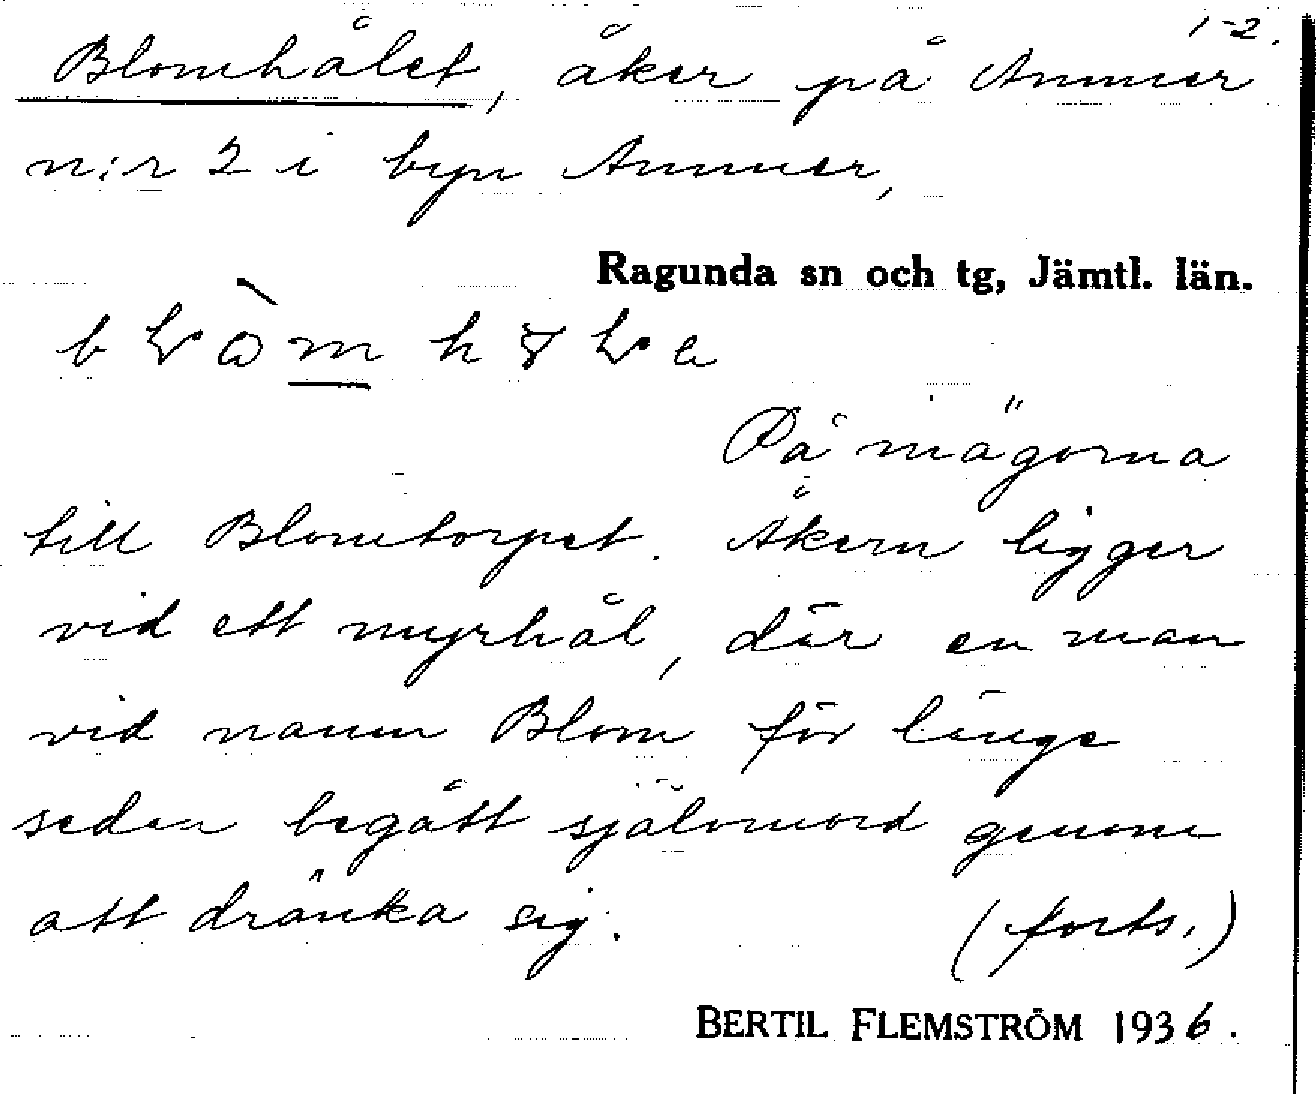 1-2.
Blomhålet, åker på Ammer
n:r 2 i byn Ammer,
Ragunda sn och tg, Jämtl. län.
På mägorna
till Blomtorpet. Åkern ligger
vid ett myrhål, där en man
vid namn Blom för länge
sedan begått självmord genom
att dränka sig.
(forts.)
BERTIL FLEMSTRÖM 1936.